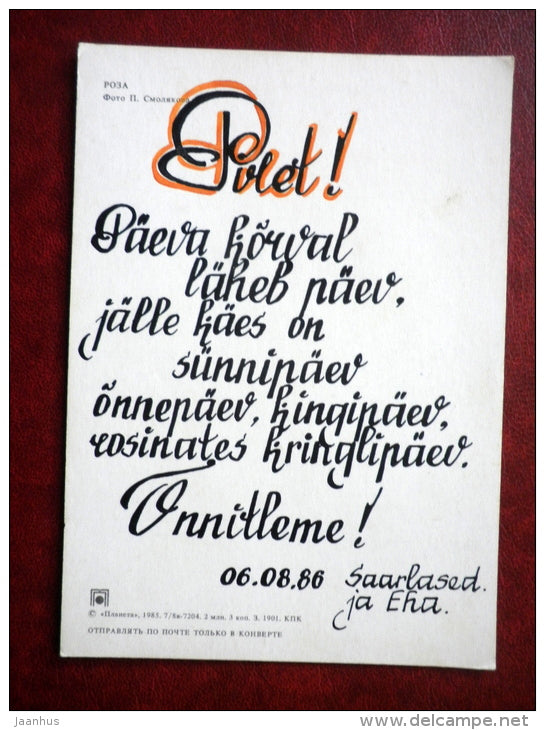 РОЗА
Фото П. Смолякова
Pulet!
Päeva kõrval
läheb päev,
jälle käes on
sünnipäev
õnnepäev, kingipäev,
rosinates kringlipäev.
Õnnitleme!
06.08.86 Saarlased.
ja Eha.
© «Планета», 1985. 7/8я-7204. 2 млн. 3 коп. З. 1901. КПК
ОТПРАВЛЯТЬ ПО ПОЧТЕ ТОЛЬКО В КОНВЕРТЕ
Jaanhus
www.delcampe.net